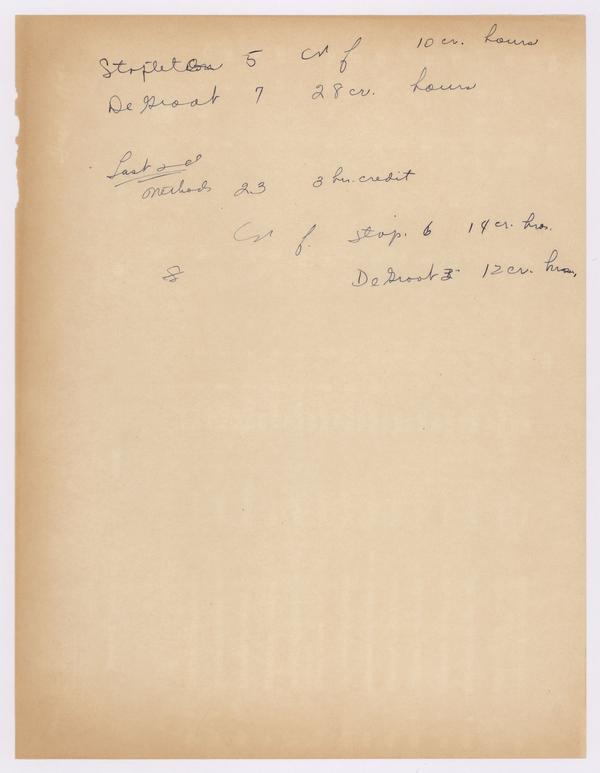 Stapleton 5 Cr f 10 cr. hours
DeGroot 7 28 cr. hours
Last
Methods 23 3 hr. credit
f. Stap. 6 14 cr. hrs.
8 DeGroot 3 12 cr. hrs.